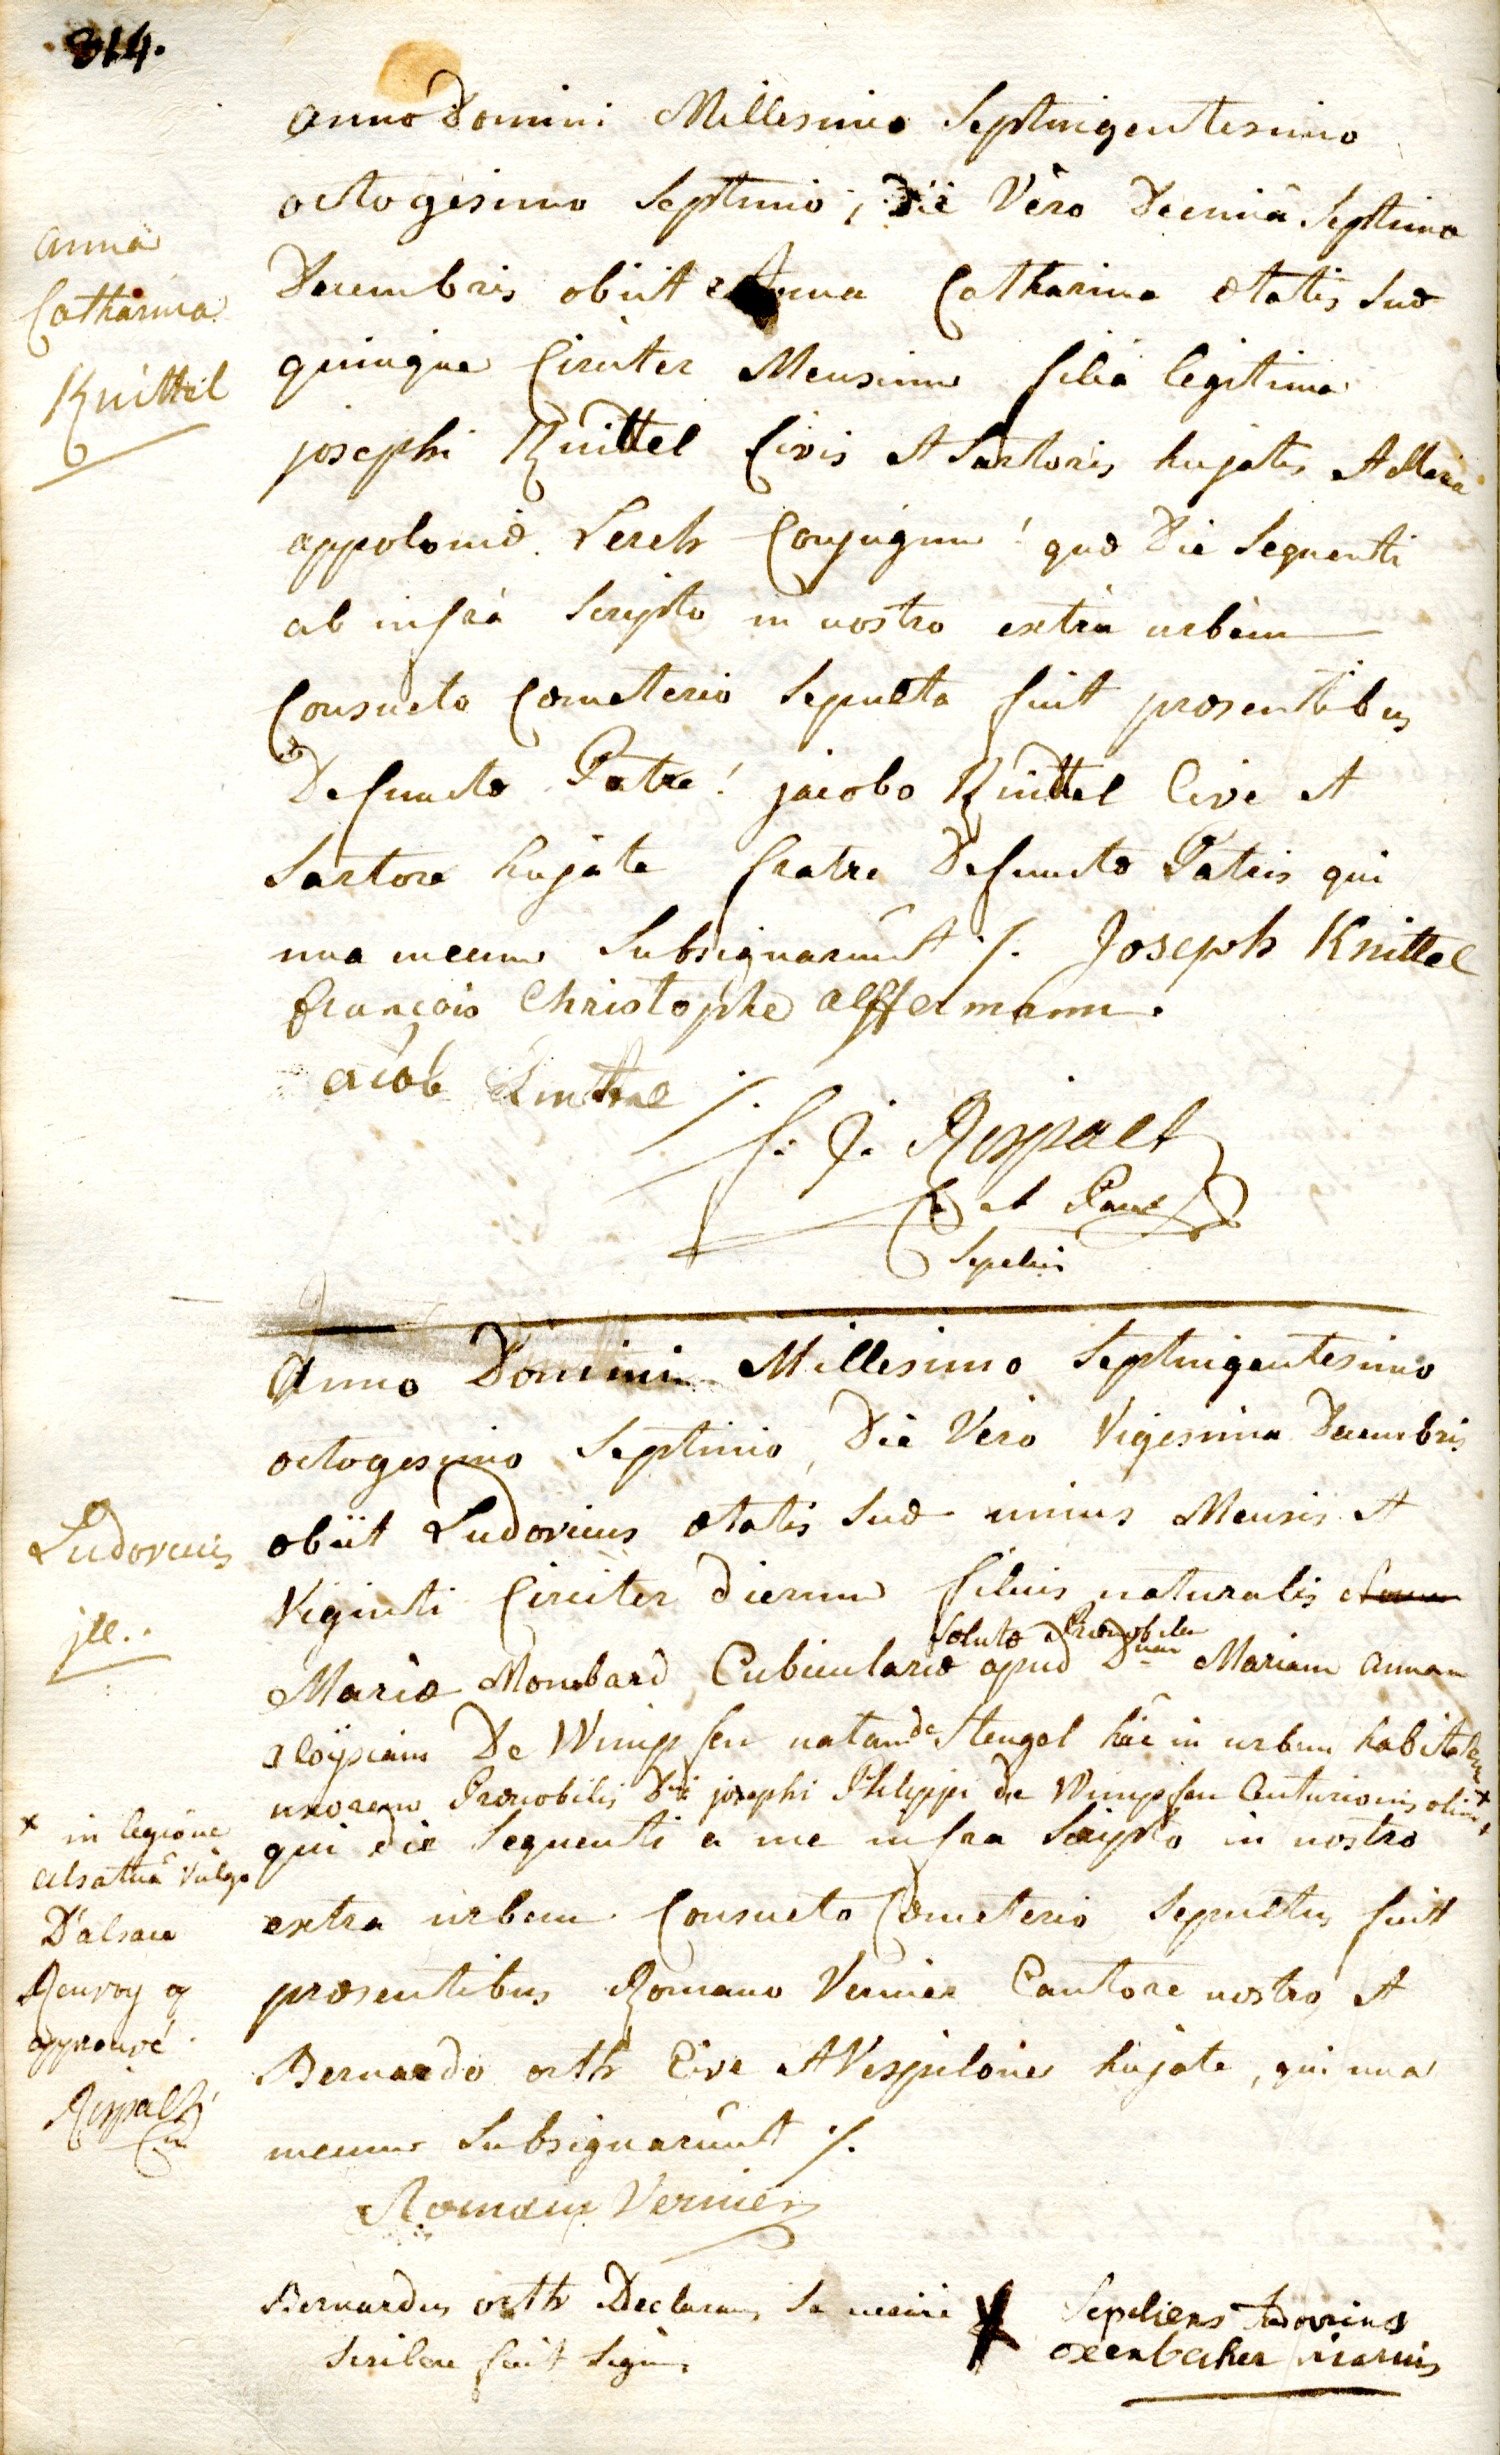 314.
Anno Domini Millesimo Septingentesimo
octogesimo Septimo, Die Vero Decimâ Septima
Anna
Catharina
Knittel
Decembris obiit Anna Catharina ætatis suæ
quinque Circiter Mensium filia legitima
josephi Knittel Civis et Sartoris hujatis et Maria
appoloniæ Lerch Conjugum! quæ Die Sequenti
ab infrà Scripto in nostro extrà urbem
Consueto Cœmeterio Sepulta fuit præsentibus
Defunctæ Patre! jacobo Knittel Cive et
Sartore hujate fratre Defunctæ Patris qui
una mecum Subsignarunt ./. Joseph Knittel
françois Christophe Alffermann.
Jacob Knittel
f. J. Respalt
C et Can
Sepeliens
Anno Domini Millesimo Septingentesimo
octogesimo Septimo, Die Vero Vigesima Decembris
Ludovicus
ill..
obiit Ludovicus ætatis suæ unius Mensis et
Viginti Circiter dierum filius naturalis
solutæ Prænobilem
Mariæ Mombard Cubiculariæ apud Dnam Mariam Annam
aloÿsiam De Wimpfen natam de Stengel hâc in urbem habitatem
uxorem Prænobilis Dni josephi Philippi de Wimpfen Centurionis olim x
x in legione
alsaticâ vulgo
D'alsace
Renvoy
approuvé
Respalt
qui die Sequenti a me infra Scripto in nostro
extra urbem Consueto Cœmeterio Sepultus fuit
præsentibus Romano Vernier Cantore nostro et
Bernardo orth Cive et Vespilone hujate, qui una
mecum Subsignarunt ./.
Romain Vernier
Bernardus orth Declarans se nescire
scribere fecit Signum
Sepeliens
oxenbecher vicarius